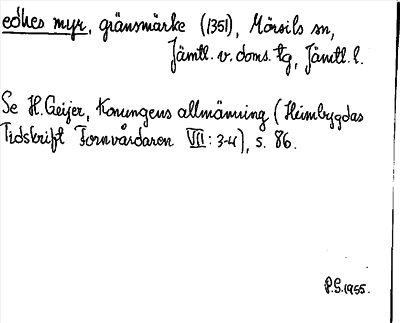 edhes myr, gränsmärke (1351), Mörsils sn,
Jämtl. v. doms. tg, Jämtl. l.
Se H. Geijer, Konungens allmänning (Heimbygdas
Tidskrift Fornvårdaren VII: 3-4), s. 86.
P.S. 1955.